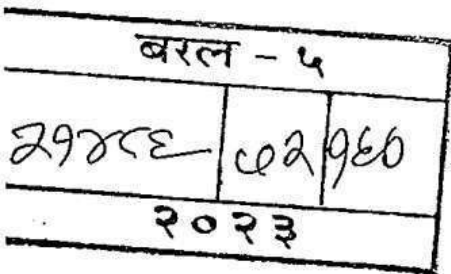 बरल - ५
२१४८६ ७२ १६०
२०२३